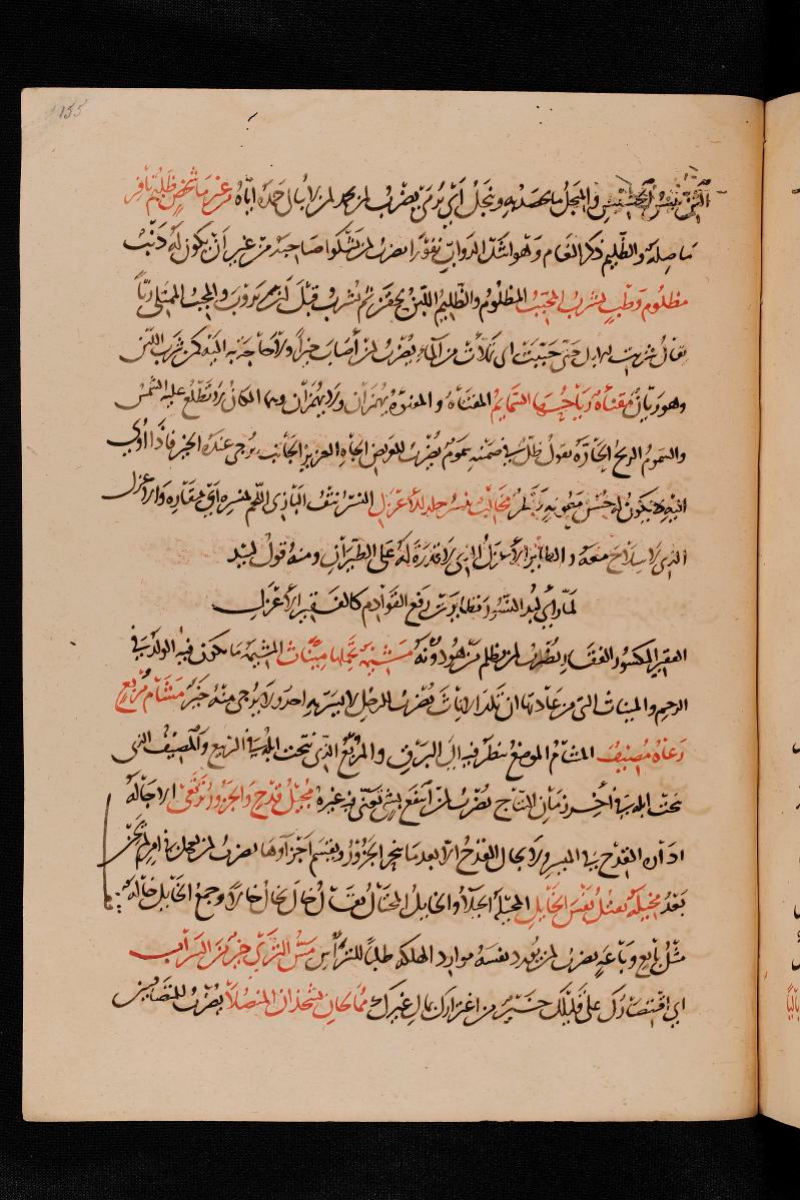 155
والنجل ما يحصد به ونجل أي رمى يضرب لمن يحمد من لا يبالي حمده إياه من غير ما شخص ظليم نافر
ما صلة والظليم ذكر النعام وهو أشد الدواب نفورا يضرب لمن يشكو صاحبه من غير أن يكون له ذنب
مظلوم وطب يشرب المحبب المظلوم والظليم اللبن يحقن ثم يشرب قبل أن يروب والمحبب الممتلئ ريا
يقال شربت الإبل حتى حببت أي تملأت من الماء يضرب لمن أصاب خيرا ولا حاجة به إليه كمن شرب اللبن
وهو ريان مقنأة رياحها السمائم المقنأة والمقنوة يهمزان ولا يهمزان وهما المكان لا تطلع عليه الشمس
والسموم الريح الحارة يقول ظل في ضمنه سموم يضرب للعريض الجاه العزيز الجانب يرجى عنده الخير فإذا أوي
إليه لا يكون له حسن معونة ونظر مخالب تنسر جلد الأعزل النسر نتف البازي اللحم بمنسره أي منقاره والأعزل
الذي لا سلاح معه والطائر الأعزل الذي لا قدرة له على الطيران ومنه قول لبيد
لما رأى لبد النسور تطايرت رفع القوادم كالفقير الأعزل
الفقير المكسور الفقار يضرب لمن يظلم من هو دونه مشيمة تحملها ميناث المشيمة ما يكون فيه الولد في
الرحم والميناث التي من عادتها أن تلد الإناث يضرب للرجل لا يسر به أحد ولا يرجى منه خير مشام مربع
رعاه مصيف المشام الموضع ينظر فيه إلى البرق والمربع الذي نتجت إبله في الربيع والمصيف الذي
نتجت إبله في آخر زمان النتاج يضرب لمن انتفع بشيء تعنى فيه غيره مجيل قدح والجزور ترتعي الإجالة
إدارة القدح في الميسر ولا يجال القدح إلا بعد ما ينحر الجزور ويقسم أجزاؤها يضرب لمن يعجل في أمر لم يحن
بعد مخيلة تقتل نفس الخايل المخيلة الخيلاء والخايل المختال يقال خال يخال خالا وجمع الخايل خالة
مثل بايع وباعة يضرب لمن يورد نفسه موارد الهلكة طلبا للترأس مس الثرى خير من السراب
أي اقتصارك على قليلك خير من اغترارك بمال غيرك مماحلان يشحذان المنصلا يضرب للمتصافيين